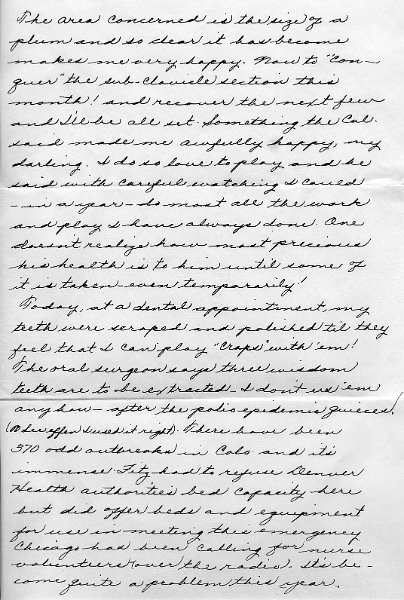 The area concerned is the size of a
plum and so clear it has become
makes me very happy. Now to "con-
quer" the sub-clavicle section this
month! and recover the next few
and I'll be all set. Something the Col.
said made me awfully happy, my
darling. I do so love to play and he
said with careful watching I could
- in a year - do most all the work
and play I have always done. One
doesn't realize how most precious
his health is to him until some of
it is taken even temporarily!
Today, at a dental appointment, my
teeth were scraped and polished til they
feel that I can play "Craps" with 'em!
The oral surgeon says three wisdom
teeth are to be extracted I don't us 'em
any how - after the polio epidemic
I used it right). There have been
370 odd outbreaks in Colo and it's
immense Fitz had to refuse Denver
Health authorities bed capacity here
but did offer beds and equipment
for use in meeting this emergency
Chicago had been calling for nurse
volunteers over the radio. It's be-
come quite a problem this year.